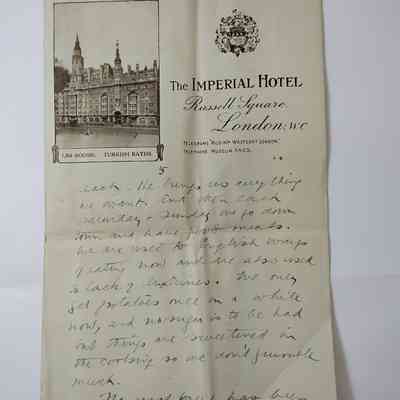 The IMPERIAL HOTEL
Russell Square,
London, WC
TELEGRAMS
TELEPHONE MUSEUM
ROOMS. TURKISH BATHS.
5
each. He brings us everything
we want. And then each
Saturday & Sunday we go down
town and have good meals.
We are used to English ways
of eating now and are also used
to lack of luxuries. We only
get potatoes once in a while
now, and no sugar is to be had
but things are sweetened in
the cooking so we don't grumble
much.
The meat has been